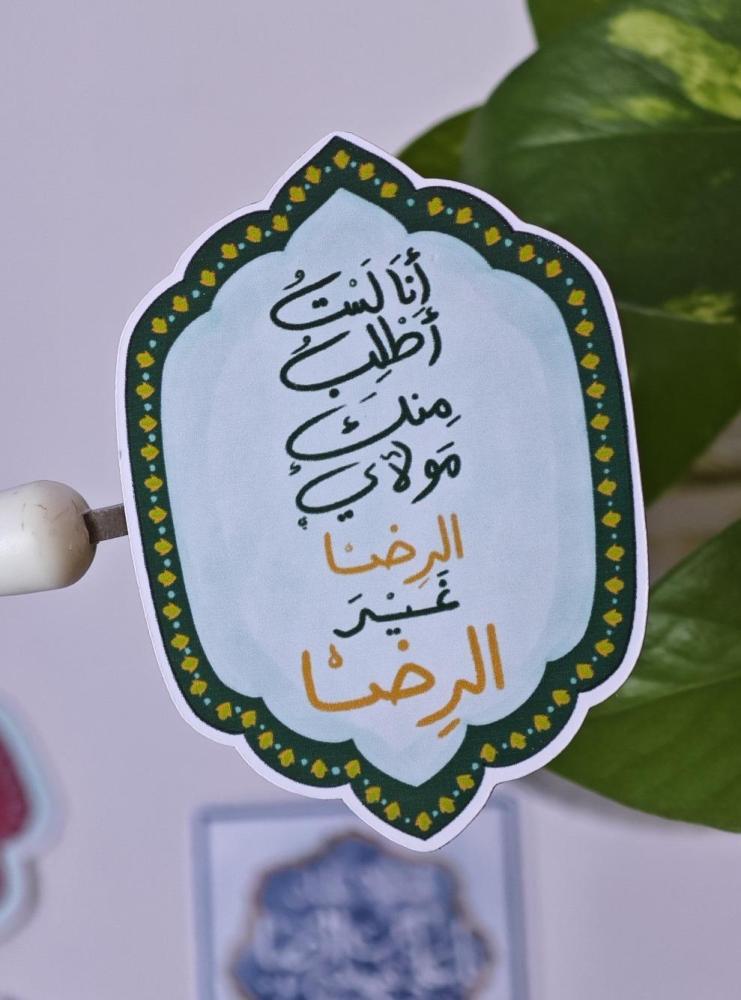 أَنَا لَسْتُ
أَطْلِبُ
مِنكَ
مَولاي
الرِضا
غَيْرَ
الرِضا